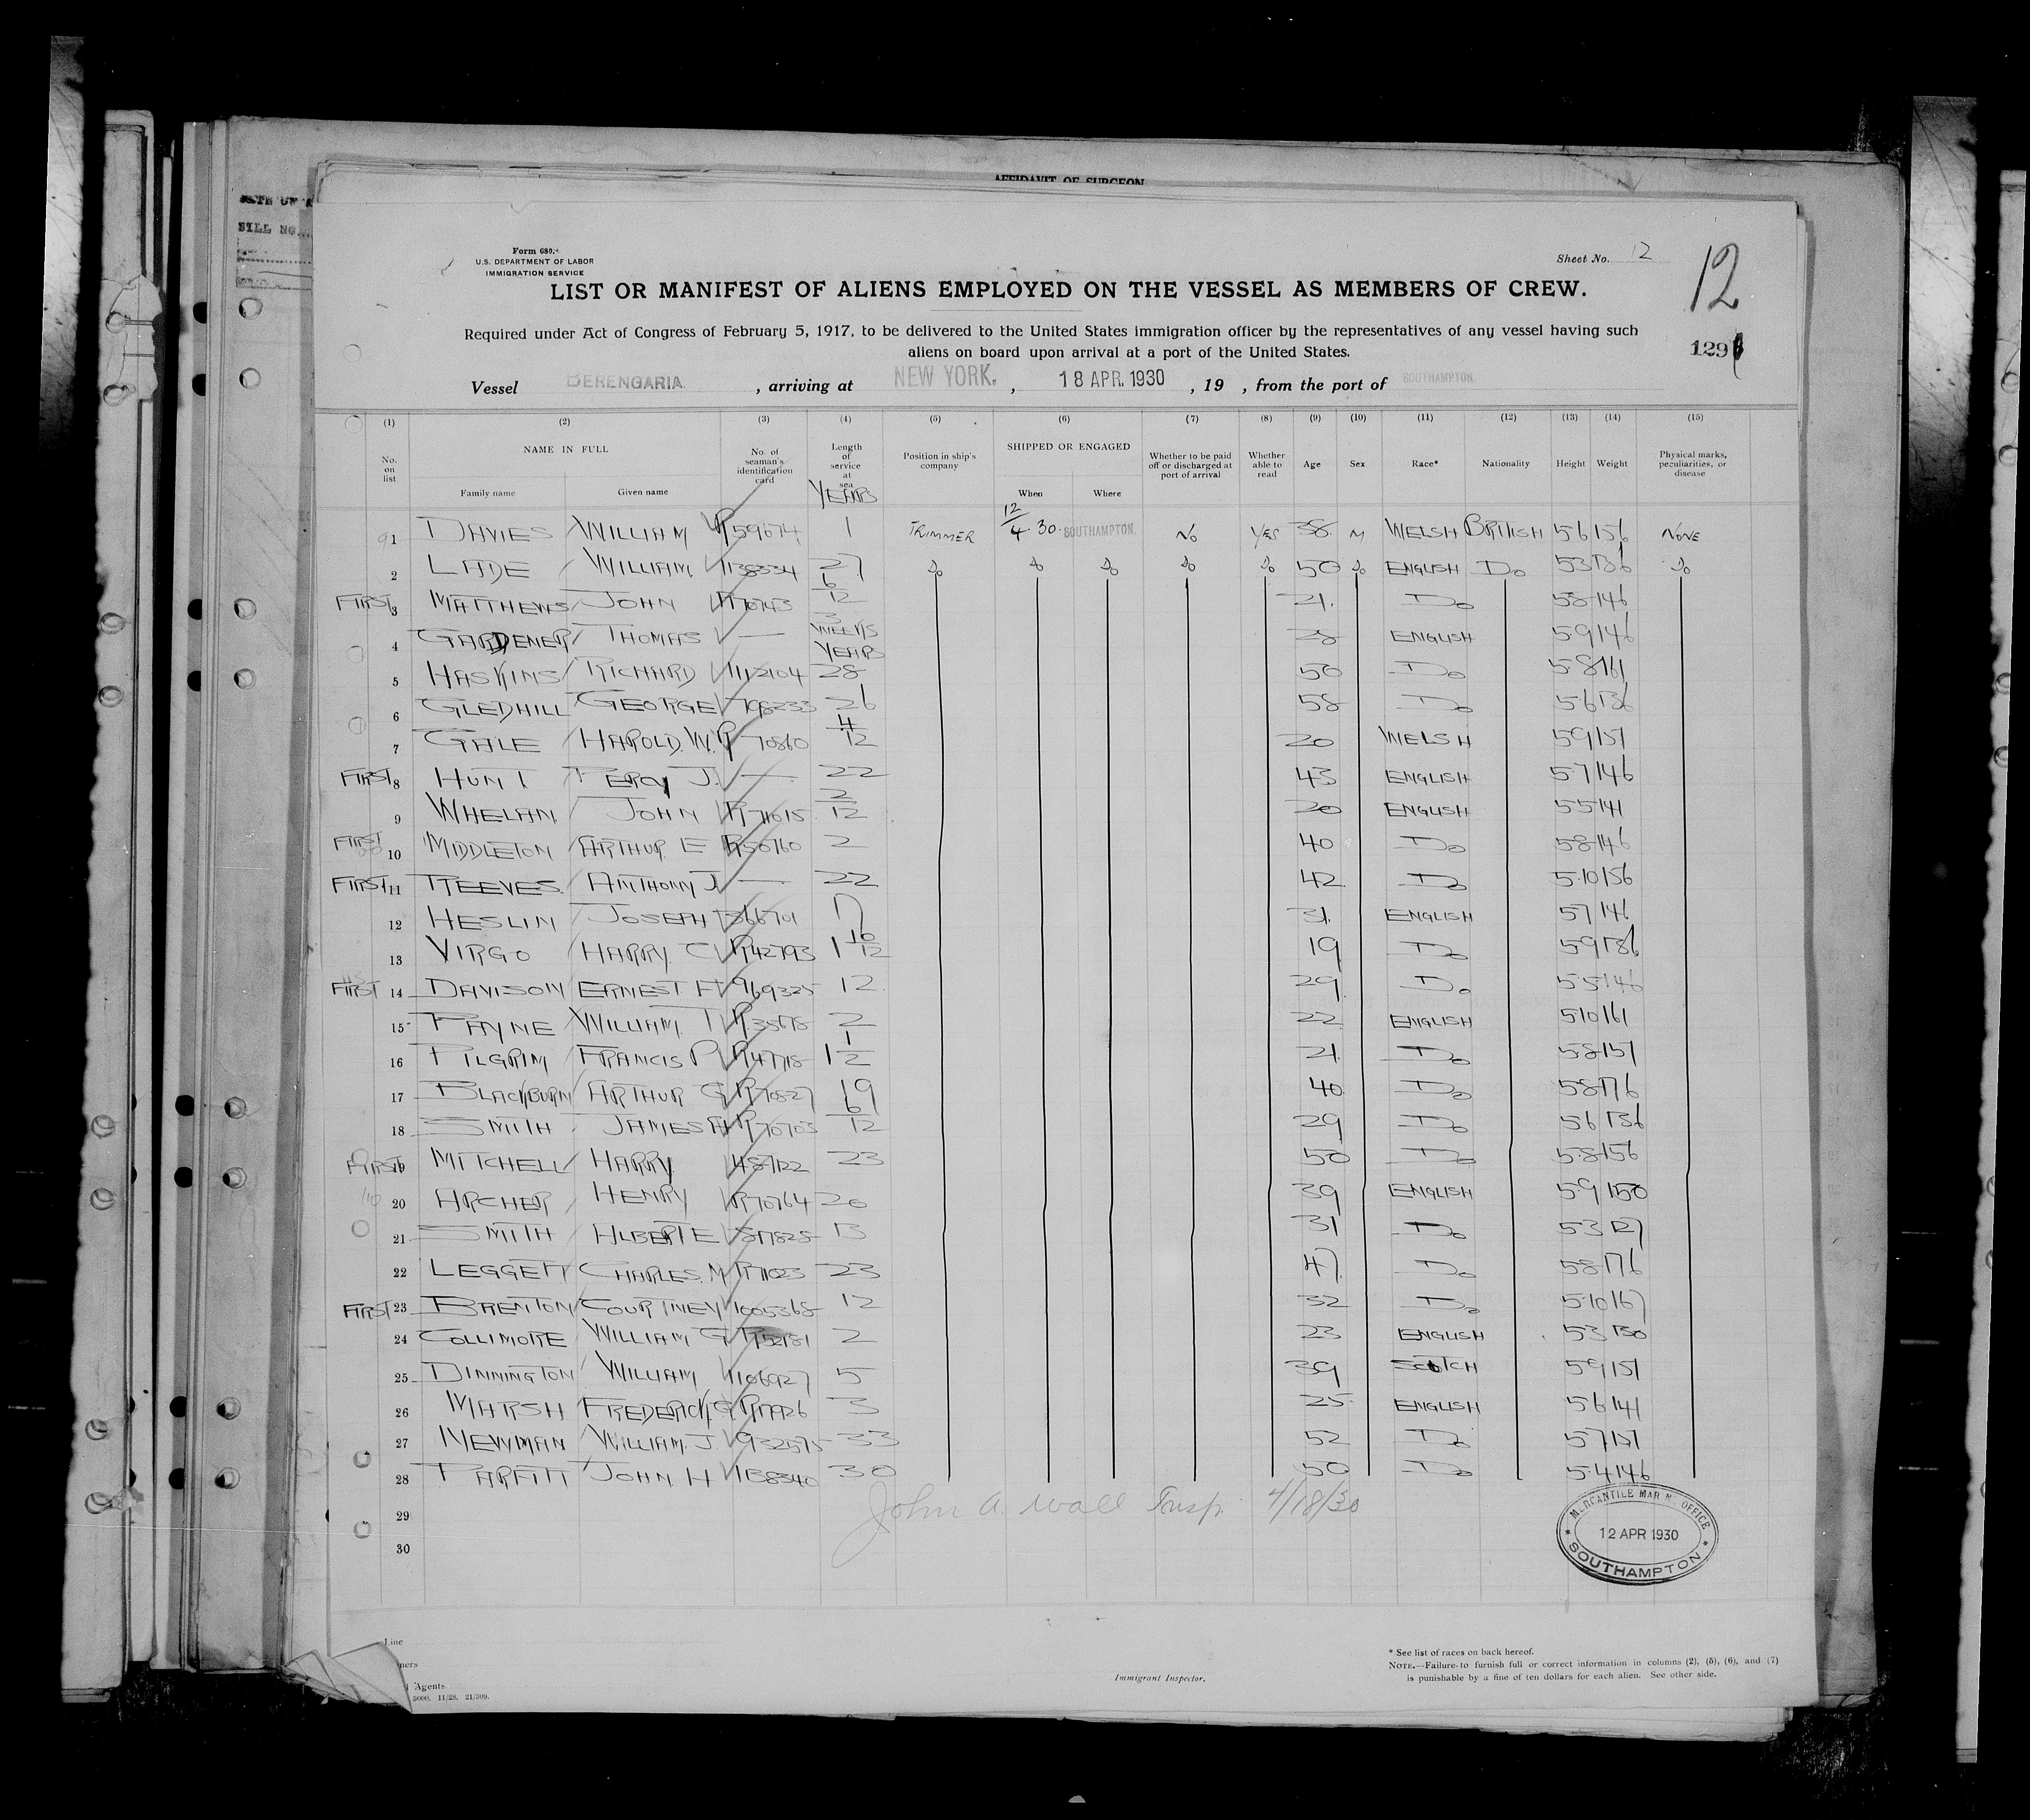 AFFIDAVIT OF SURGEON
BILL NO.
Form 680
U.S. DEPARTMENT OF LABOR
IMMIGRATION SERVICE
Sheet No. 12
12
LIST OR MANIFEST OF ALIENS EMPLOYED ON THE VESSEL AS MEMBERS OF CREW.
Required under Act of Congress of February 5, 1917, to be delivered to the United States immigration officer by the representatives of any vessel having such
aliens on board upon arrival at a port of the United States.
129
Vessel BERENGARIA , arriving at NEW YORK. , 18 APR. 1930 , 19 , from the port of SOUTHAMPTON.
(1) (2) (3) (4) (5) (6) (7) (8) (9) (10) (11) (12) (13) (14) (15)
No. on list NAME IN FULL Family name Given name No. of seaman's identification card Length of service at sea YEARS Position in ship's company SHIPPED OR ENGAGED When Where Whether to be paid off or discharged at port of arrival Whether able to read Age Sex Race* Nationality Height Weight Physical marks, peculiarities, or disease
1 DAVIES WILLIAM R59674 1 TRIMMER 12/4.30. SOUTHAMPTON. NO YES 38 M WELSH BRITISH 56 156 NONE
2 LADE WILLIAM 1138334 27 Do Do Do Do Do 50 Do ENGLISH Do 53 136 Do
FIRST 3 MATTHEWS JOHN R70743 6/12 21. Do 58 146
4 GARDENER THOMAS — 3 WEEKS 28 ENGLISH 59 146
5 HASKINS RICHARD 1112104 YEARS 28 50 Do 5.8 161
6 GLEDHILL GEORGE 708233 26 58 Do 56 136
7 GALE HAROLD. W. R 70860 4/12 20 WELSH 59 151
FIRST 8 HUNT PERCY J. — 22 43 ENGLISH 57 146
9 WHELAN JOHN R71615 2/12 20 ENGLISH 55 141
FIRST 10 MIDDLETON ARTHUR E R50760 2 40 Do 58 146
FIRST 11 REEVES. ANTHONY J — 22 42 Do 5.10 156
12 HESLIN JOSEPH 366701 17 31. ENGLISH 57 146
13 VIRGO HARRY. C R42793 1 10/12 19 Do 59 136
FIRST 14 DAVISON ERNEST H 969325 12 29. Do 5.5 146
15 PAYNE WILLIAM T R35678 2 22 ENGLISH 510 161
16 PILGRIM FRANCIS P R47718 1 1/2 21. Do 58 151
17 BLACKBURN ARTHUR G R70827 19 40 Do 58 176
18 SMITH JAMES H R70703 6/12 29 Do 56 136
FIRST 19 MITCHELL HARRY 487122 23 50 Do 5.8 156
20 ARCHER HENRY R70764 20 39 ENGLISH 5.9 150
21 SMITH ALBERT E 517825 13 31 Do 53 127
22 LEGGETT CHARLES. M R71023 23 47. Do 58 176
FIRST 23 BRENTON COURTNEY 1005368 12 32 Do 5.10 167
24 COLLIMORE WILLIAM G R52181 2 23 ENGLISH 53 130
25 DINNINGTON WILLIAM 1106927 5 39 SCOTCH 59 151
26 MARSH FREDERICK G R17926 3 25 ENGLISH 56 141
27 NEWMAN WILLIAM. J 932575 33 52 Do 57 151
28 PARFITT JOHN. H 1138340 30 50 Do 5.4 146
29 John A. Wall Insp. 4/18/30
30
MERCANTILE MARINE OFFICE
12 APR 1930
SOUTHAMPTON
Line
Agents
5000. 11/28. 21/309.
Immigrant Inspector.
* See list of races on back hereof.
NOTE.—Failure to furnish full or correct information in columns (2), (5), (6), and (7)
is punishable by a fine of ten dollars for each alien. See other side.